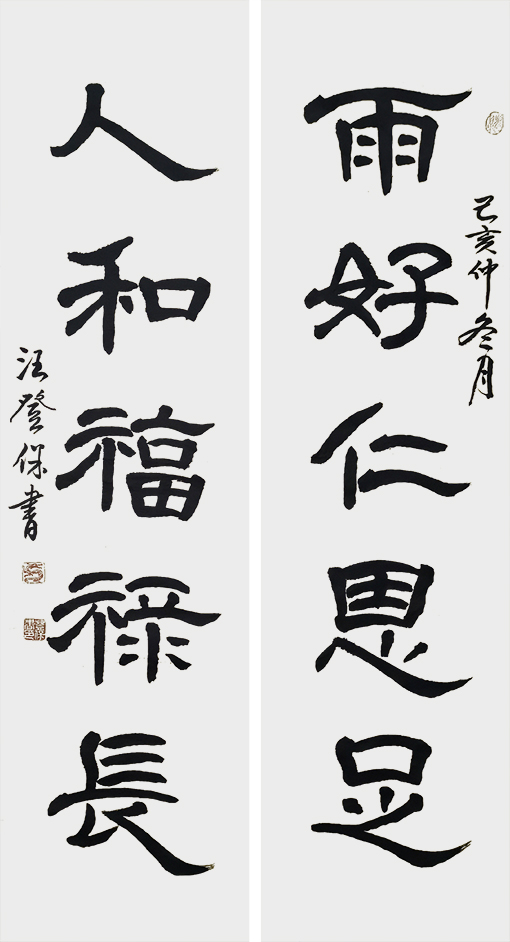 己亥仲冬月
雨好仁恩足
人和福禄長
汪登保書